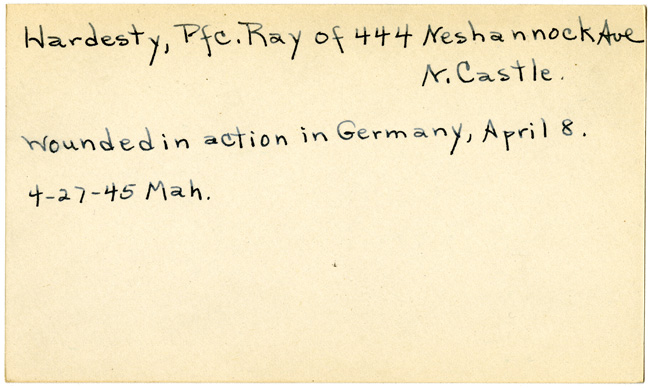 Hardesty, Pfc. Ray of 444 Neshannock Ave
N. Castle.
Wounded in action in Germany, April 8.
4-27-45 Mah.